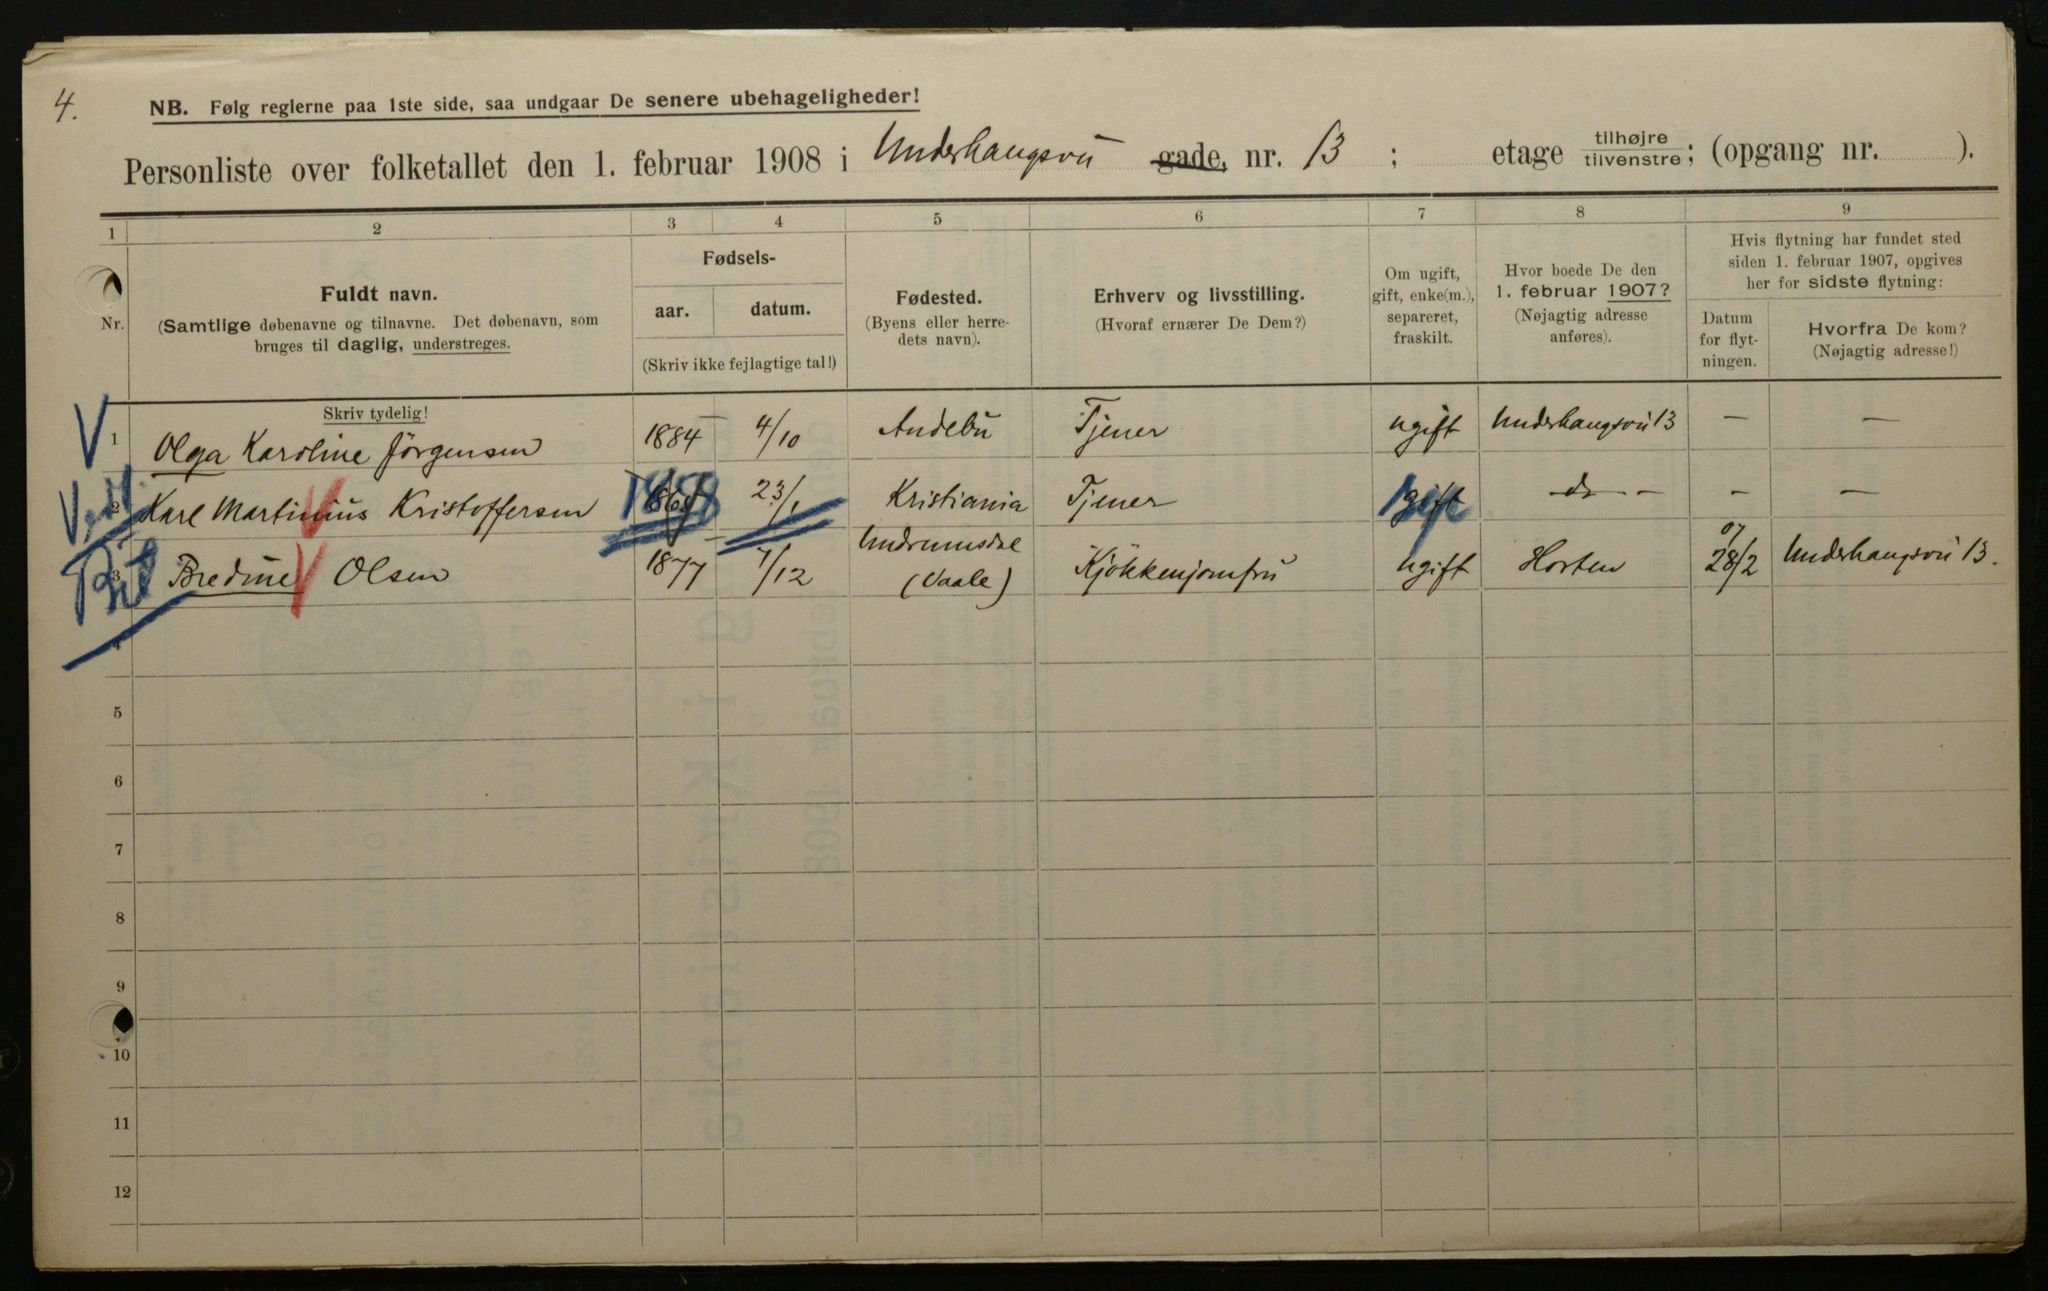 4.
NB. Følg reglerne paa 1ste side, saa undgaar De senere ubehageligheder!
Personliste over folketallet den 1. februar 1908 i Underhaugsvei gade, nr. 13 ; etage tilhøjre / tilvenstre ; (opgang nr. ).
1 2 3 4 5 6 7 8 9
Nr.
Fuldt navn.
(Samtlige døbenavne og tilnavne. Det døbenavn, som
bruges til daglig, understreges.
Fødsels-
aar. datum.
(Skriv ikke fejlagtige tal!)
Fødested.
(Byens eller herre-
dets navn).
Erhverv og livsstilling.
(Hvoraf ernærer De Dem?)
Om ugift,
gift, enke(m.),
separeret,
fraskilt.
Hvor boede De den
1. februar 1907?
(Nøjagtig adresse
anføres).
Hvis flytning har fundet sted
siden 1. februar 1907, opgives
her for sidste flytning:
Datum
for flyt-
ningen.
Hvorfra De kom?
(Nøjagtig adresse!)
Skriv tydelig!
V 1 Olga Karoline Jörgensen 1884 4/10 Andebu Tjener ugift Underhaugsvei 13 — —
2 Karl Martinius Kristoffersen 1868 23/1 Kristiania Tjener gift — do — — —
3 Bredine Olsen 1877 7/12 Undrumsdal (Vaale) Kjökkenjomfru ugift Horten 07 28/2 Underhaugsvei 13.
4
5
6
7
8
9
10
11
12